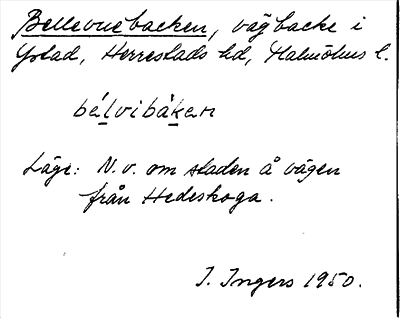 Bellevuebacken, vägbacke i
Ystad, Herrestads hd, Malmöhus l.
bélvibáken
Läge: N.v. om staden å vägen
från Hedeskoga.
I. Ingers 1950.